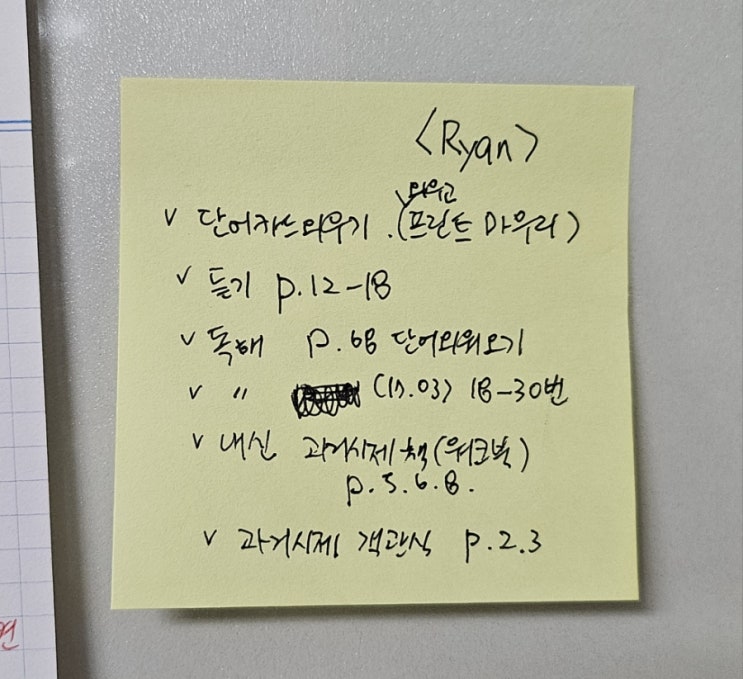 <Ryan>
외우고
v 단어카드외우기 .(프린트 마무리)
v 듣기 p.12-18
v 독해 p.68 단어외워오기
v 〃 (17.03) 18-30번
v 내신 과거시제책(워크북)
p.5.6.8.
v 과거시제 객관식 p.2.3